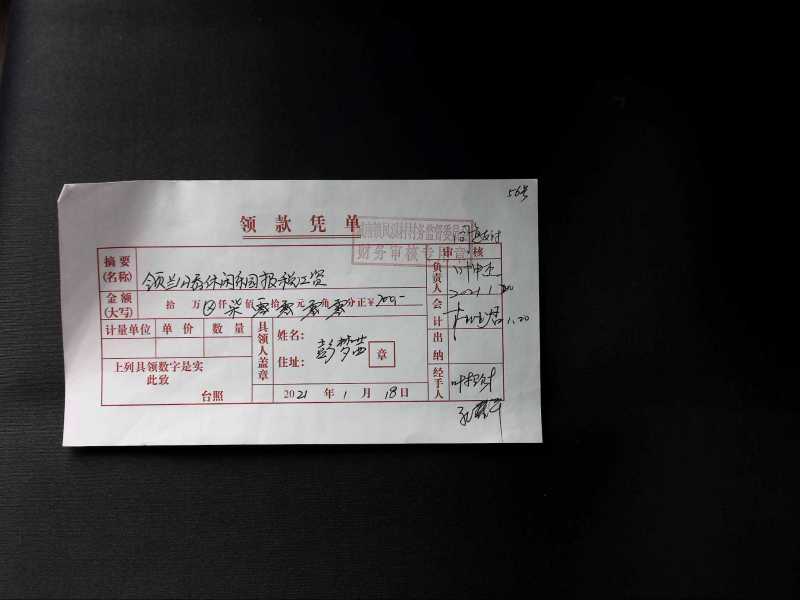 56号
领款凭单
财务审核专用章
同意支付
审核
摘要
(名称)
休闲公园报税工资
负责人
2021.1.20
金额
(大写)
拾 万 仟 柒 佰 零 拾 零 元 零 角 零 分正 ¥700.-
会计
1.20
计量单位 单价 数量
出纳
具领人盖章
姓名:
彭梦茜
住址:
章
上列具领数字是实
此致
台照
2021 年 1 月 18 日
经手人